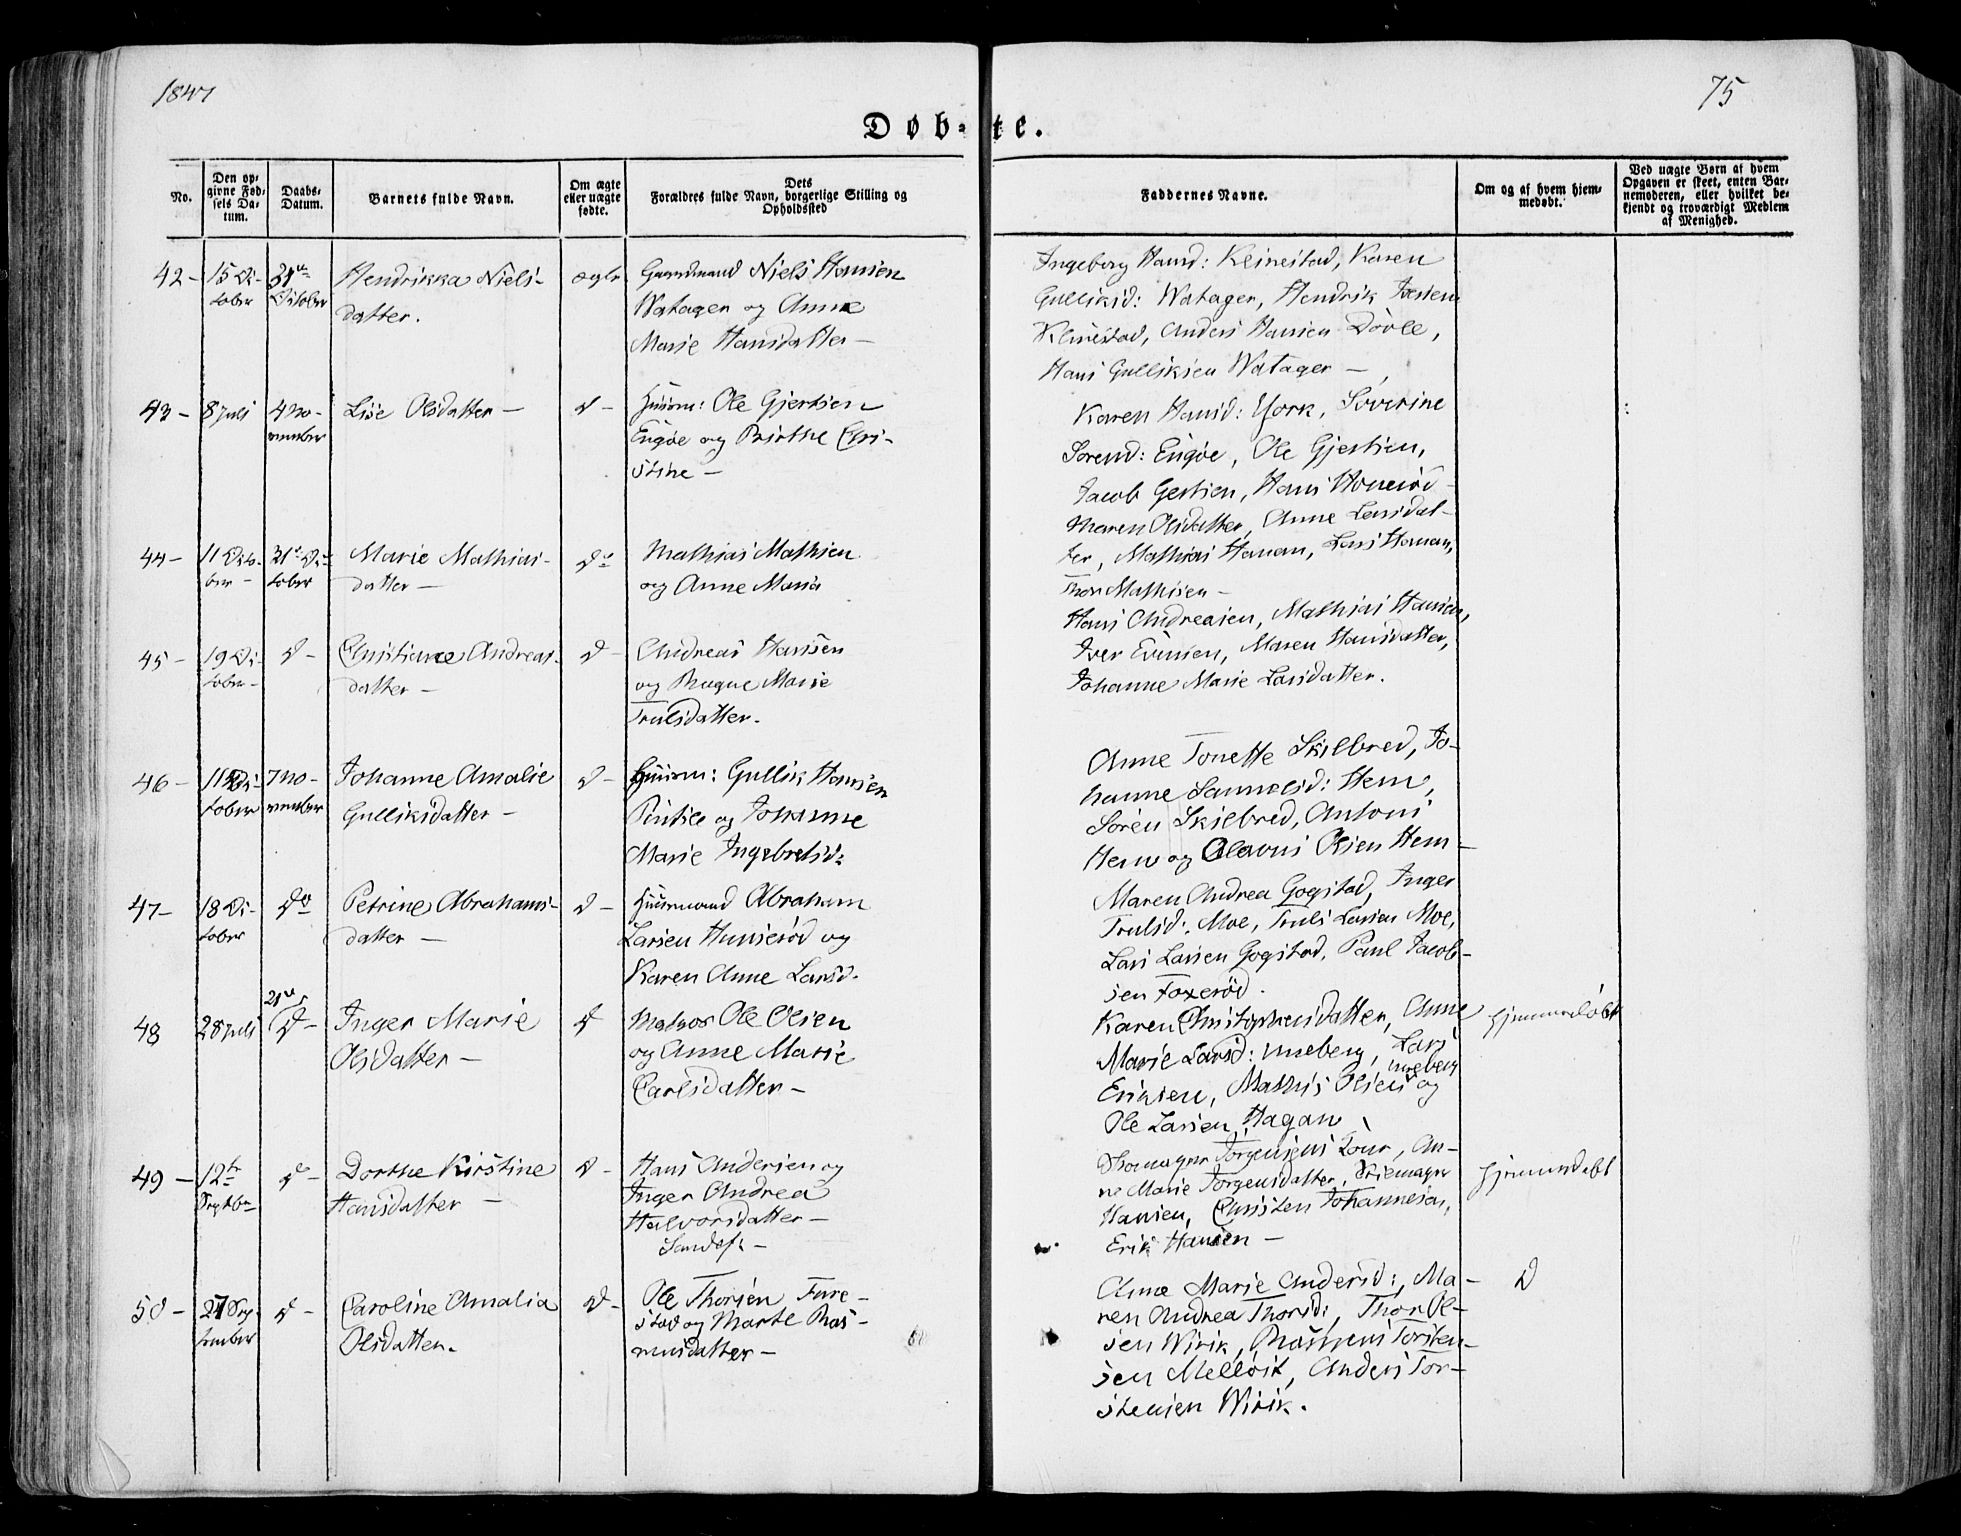 1847
75
Døb-te.
No.
Den op-
givne Fød-
sels Da-
tum.
Daabs-
Datum.
Barnets fulde Navn.
Om ægte
eller uægte
fødte.
Dets
Forældres fulde Navn, borgerlige Stilling og
Opholdssted
Faddernes Navne.
Om og af hvem hjem-
medøbt.
Ved uægte Børn af hvem
Opgaven er skeet, enten Bar-
nemoderen, eller hvilket be-
kjendt og troværdigt Medlem
af Menighed.
42-
15 Oc-
tober
31te
October
Hendrikka Niels-
datter.
ægte
Gaardmand Niels Hansen
Watager og Anne
Marie Hansdatter -
Ingeborg Hansd: Klinestad, Karen
Gulliksd: Watager, Hendrik Iversen
Klinestad, Anders Hansen Døvle,
Hans Gulliksen Watager -
43 -
8 Juli
4 No-
vember
Lise Olsdatter -
d -
Huusm: Ole Gjertsen
Engøe og Birthe Chri-
stine -
Karen Hansd: York, Søverine
Sørensd: Engøe, Ole Gjertsen,
Jacob Gertsen, Hans
44 -
11 Octo-
ber -
31te Oc-
tober
Marie Mathias-
datter -
do
Mathias Mathsen
og Anne Maria
Maren Olsdatter, Anne Larsdat-
ter, Mathias Hanan, Lars Hanan,
Thor Mathisen -
45 -
19 Oc-
tober -
d -
Christiane Andreas-
datter -
d -
Andreas Hansen
og Marie
Trulsdatter.
Hans Andreasen, Mathias Hansen,
Iver Evensen, Maren Hansdatter,
Johanne Marie Larsdatter.
46 -
11 Oc-
tober
7 No-
vember
Johanne Amalie
Gulliksdatter -
d -
Huusm: Gullik Hansen
Pintile og Johanne
Marie Ingebretsd:
Anne Tonette Skilbred, Jo-
hanne Samuelsd: Hem,
Søren Skilbred, Antoni
Hem og Olavus Olsen Hem -
47 -
18 Oc-
tober
do
Petrine Abrahams-
datter -
d -
Huusmand Abraham
Larsen Hunserød og
Karen Anne Larsd.
Maren Andrea Gogstad, Inger
Trulsd: Moe, Truls Larsen Moe,
Lars Larsen Gogstad, Paul Jacob-
sen Foxerød.
48
28 Juli
21de
d -
Inger Marie
Olsdatter -
d
Matros Ole Olsen
og Anne Marie
Carlsdatter -
Karen Christophersdatter, Anne
Marie Larsd: Uneberg, Lars
Uneberg
Eriksen, Mathis Olsen og
Ole Larsen Hagan
hjemmedøbt
49 -
12te
Septbr
d -
Dorthe Kirstine
Hansdatter -
d -
Hans Andersen og
Inger Andrea
Halvorsdatter -
Sandef: -
Skomager Jørgensens Kone, An-
ne Marie Jørgensdatter, Skomager
Hansen, Christen Johannesen,
Erik Hansen -
hjemmedøbt
50 -
27 Sep-
tember
d -
Caroline Amalia
Olsdatter.
d -
Ole Thorsen Fure-
stad og Marte Ras-
musdatter -
Anne Marie Andersd:, Ma-
ren Andrea Thorsd:, Thor Ol-
sen Wirik, Rasmus Torsten-
sen Melløst, Anders Tor-
stensen Wirik.
d